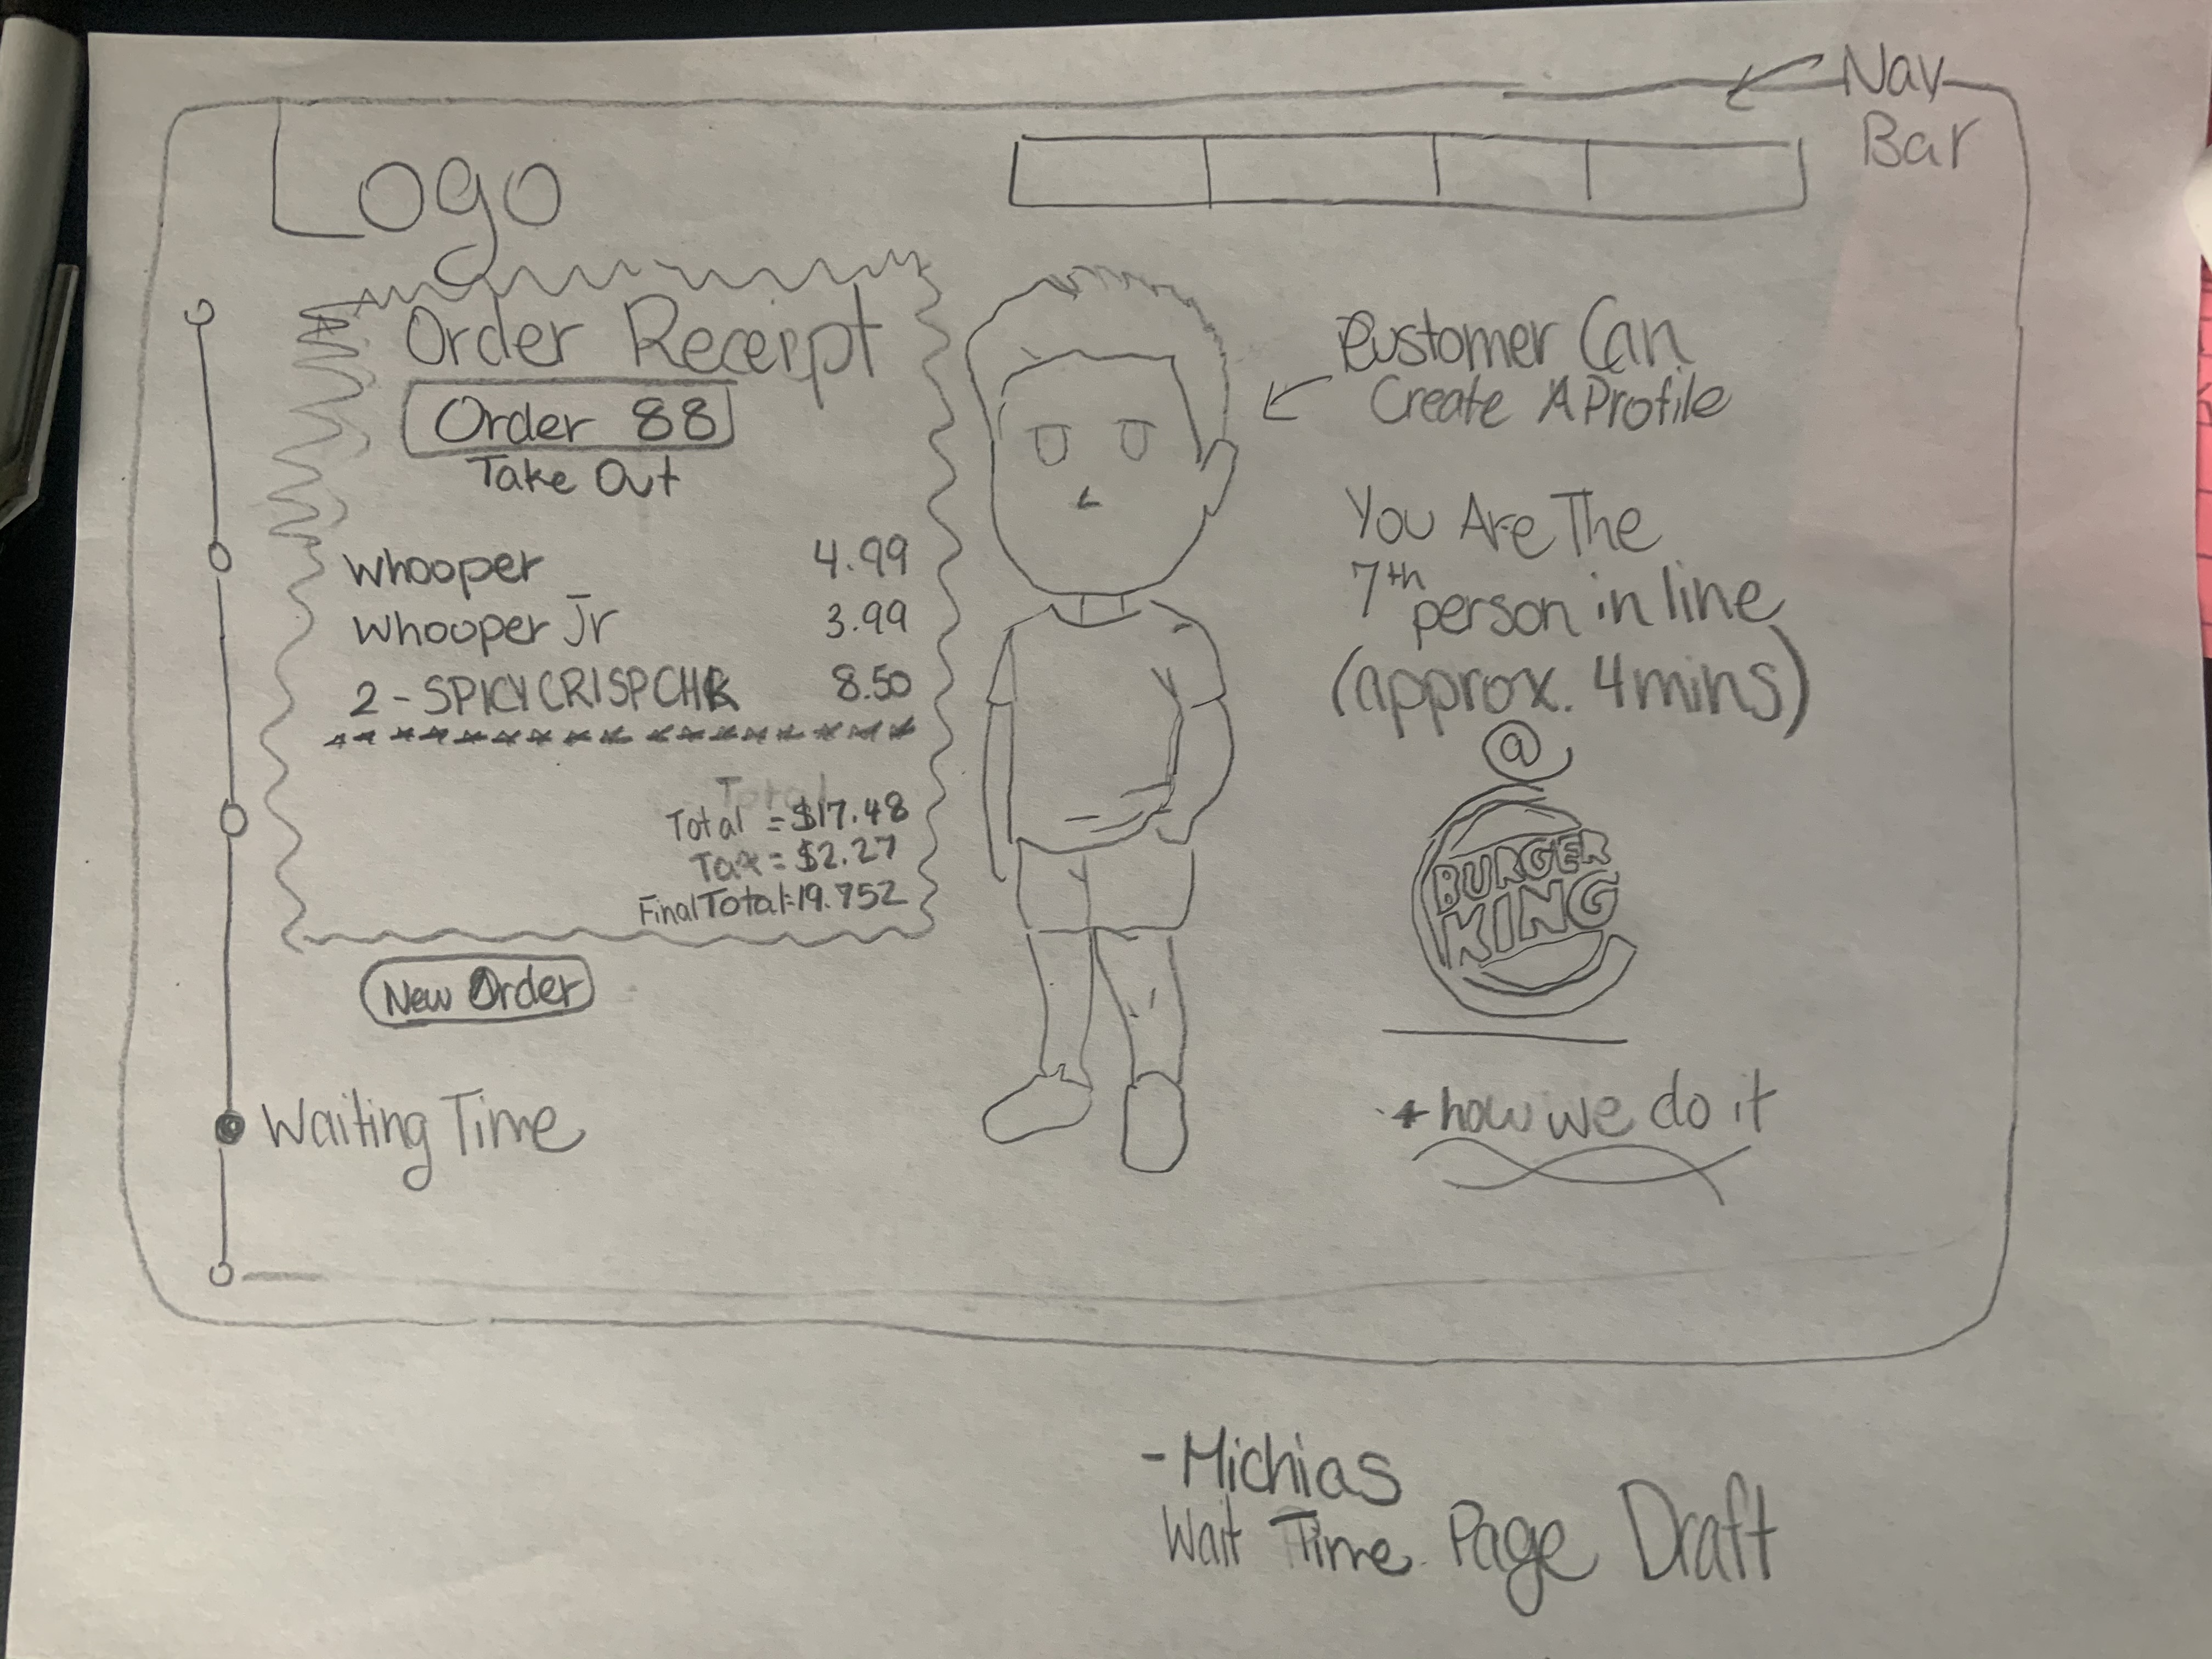 Nav
Bar
Logo
Order Receipt
Order 88
Take Out
Whooper 4.99
Whooper Jr 3.99
2 - SPICYCRISPCHK 8.50
Total
Total = $17.48
Tax = $2.27
Final Total: 19.752
New Order
Waiting Time
Customer Can
Create A Profile
You Are The
7th person in line
(approx. 4mins)
@
BURGER
KING
* how we do it
- Michias
Wait Time Page Draft